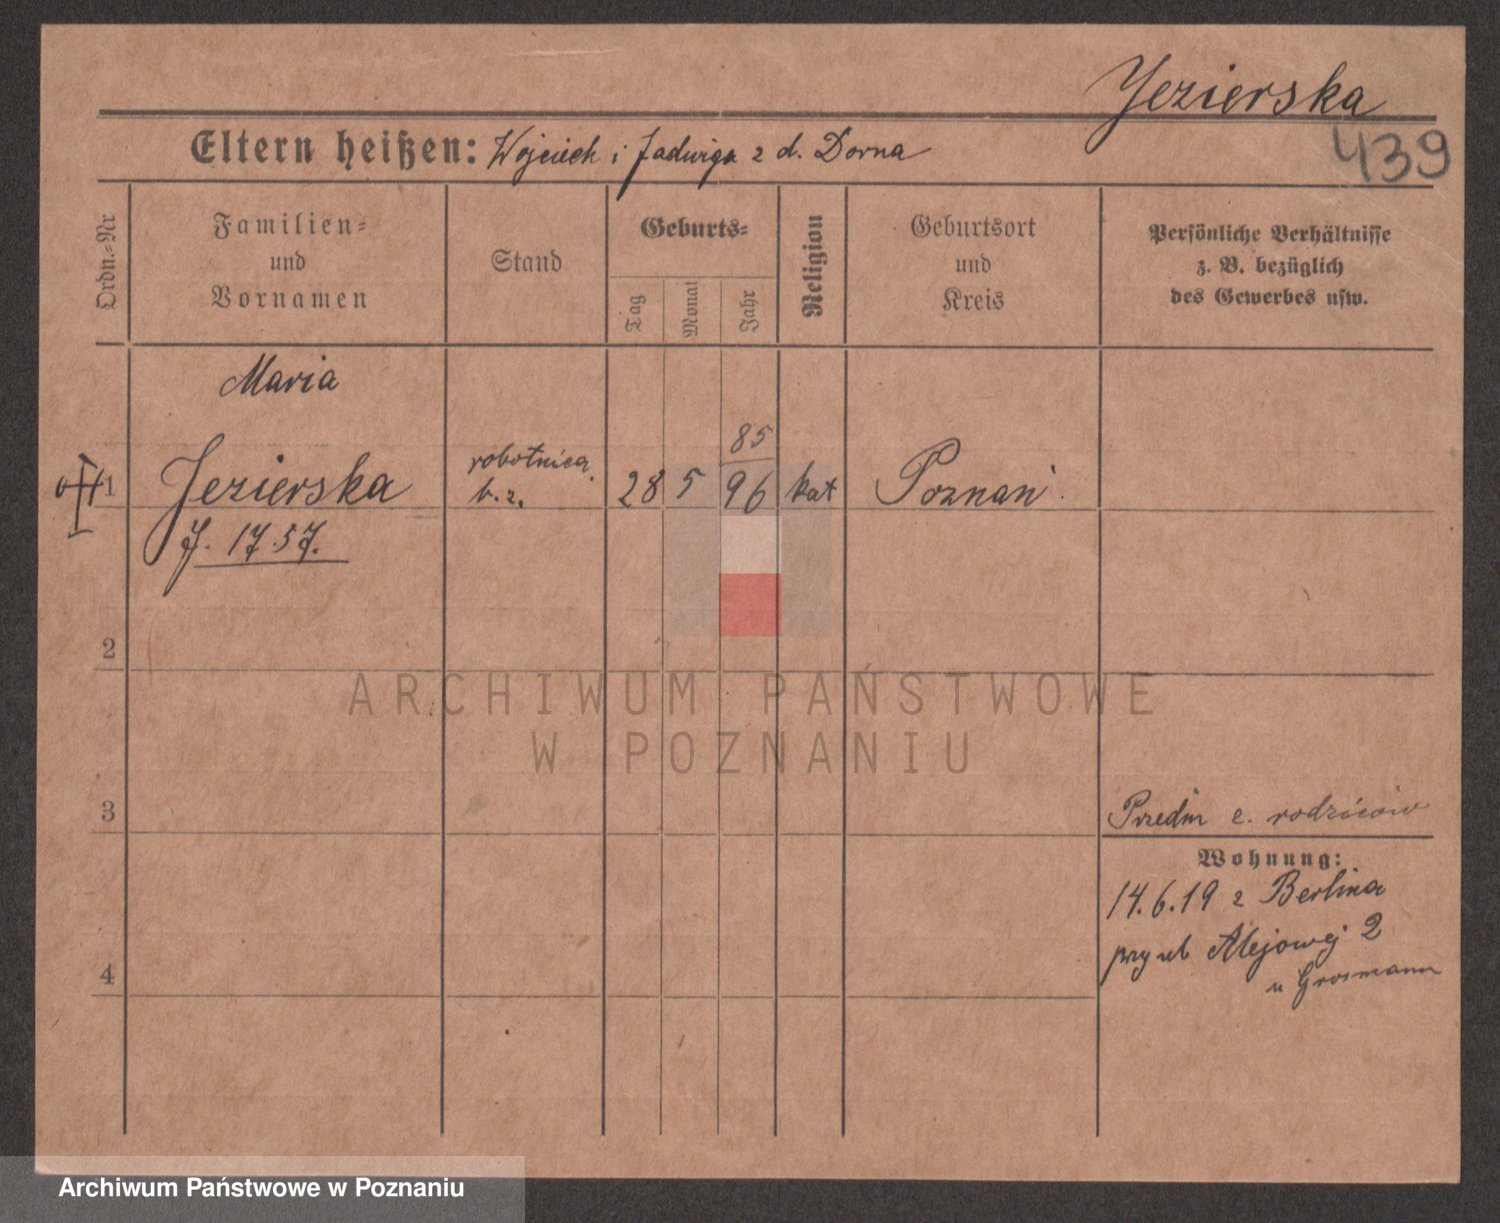 Jezierska
439
Eltern heißen: Wojciech i Jadwiga z d. Dorna
Ordn.=Nr
Familien=
und
Vornamen
Stand
Geburts=
Tag
Monat
Jahr
Religion
Geburtsort
und
Kreis
Persönliche Verhältnisse
z. B. bezüglich
des Gewerbes usw.
Maria
1
Jezierska
robotnica
b. z.
28
5
85
96
kat
Poznań
J. 17.57.
2
3
4
Przedm c. rodziców
Wohnung:
14.6.19 z Berlina
przy ul Alejowej 2
u Grosmann
ARCHIWUM PAŃSTWOWE
W POZNANIU
Archiwum Państwowe w Poznaniu